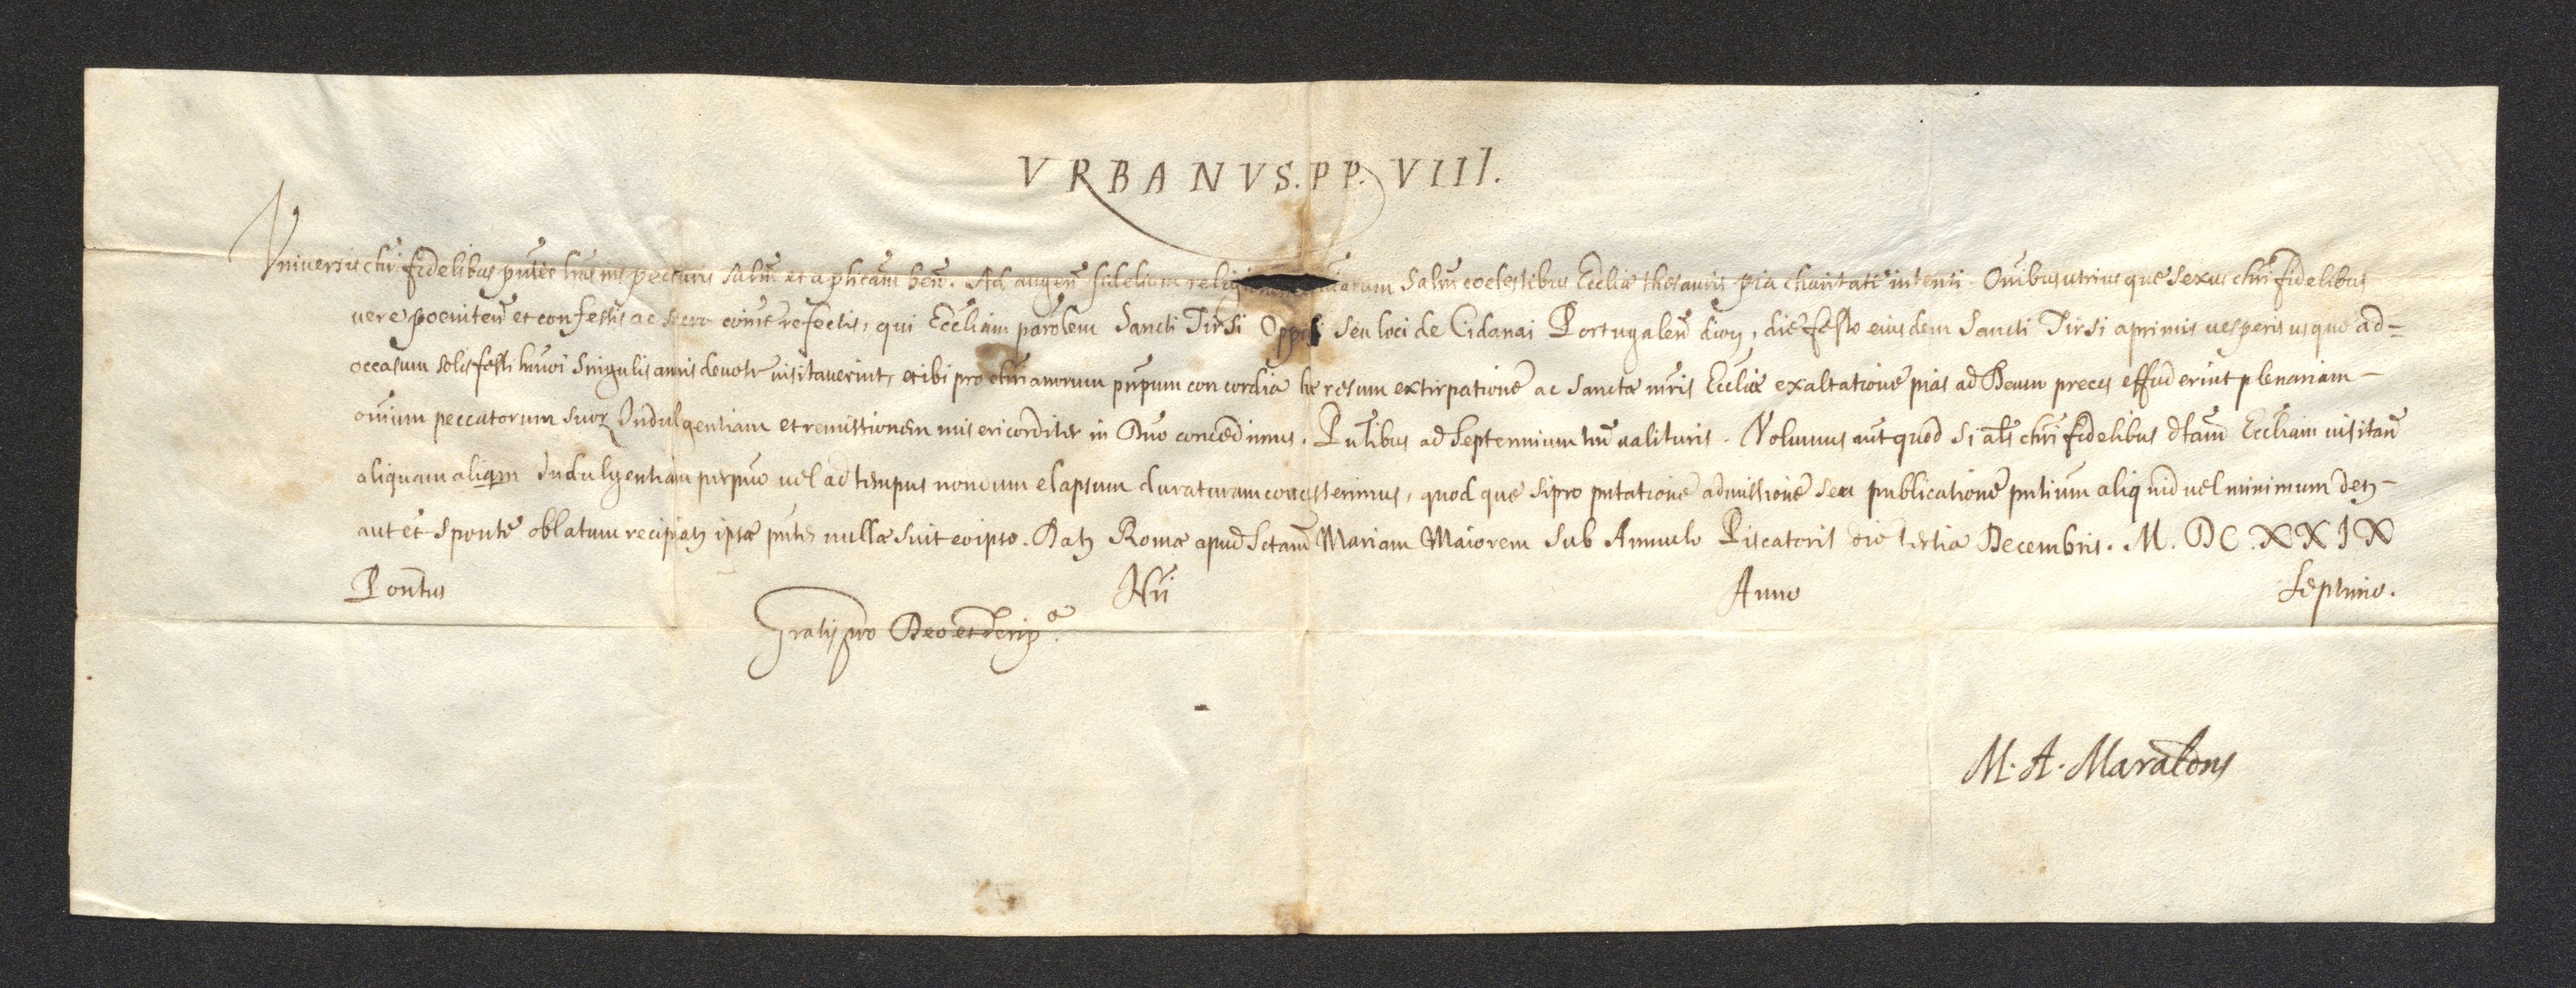 VRBANVS. PP. VIII.
Vniversis chri fidelibus pntes lras inspecturis salm et aplicam ben. Ad augen fidelium salm coelestibus Ecclie thesauris pia charitate intenti. Omibus utriusque sexus chri fidelibus
vere poeniten et confessis ac sacra coione refectis, qui Eccliam parolem Sancti Tirsi Oppidi seu loci de Cidanai Portugalen dioc, die festo eiusdem Sancti Tirsi a primis vesperis usque ad=
occasum solis festi hmoi singulis annis devote visitaverint, et ibi pro chrianorum pnpum concordia heresum extirpatione ac sanctæ mris Eccliæ exaltatione pias ad Deum preces effuderint plenariam-
omium peccatorum suorȝ Indulgentiam et remissionem misericorditer in Dno concedimus. Pntibus ad septennium tm valituris. Volumus aut quod si als chri fidelibus dtam Eccliam visitan
aliquam aliqm Indulgentiam perpuo vel ad tempus nondum elapsum duraturam concesserimus, quod que si pro pntatione admissione seu publicatione pntium aliquid vel minimum detȝ-
aut et sponte oblatum recipiatȝ ipsæ pntes nullæ sint eo ipso. Datȝ Romæ apud Sctam Mariam Maiorem sub Annulo Piscatoris die tertia Decembris. M. DC. XXIX
Pontus Nri Anno Septimo.
Gratis pro Deo et scrip.a
M. A. Maraldus